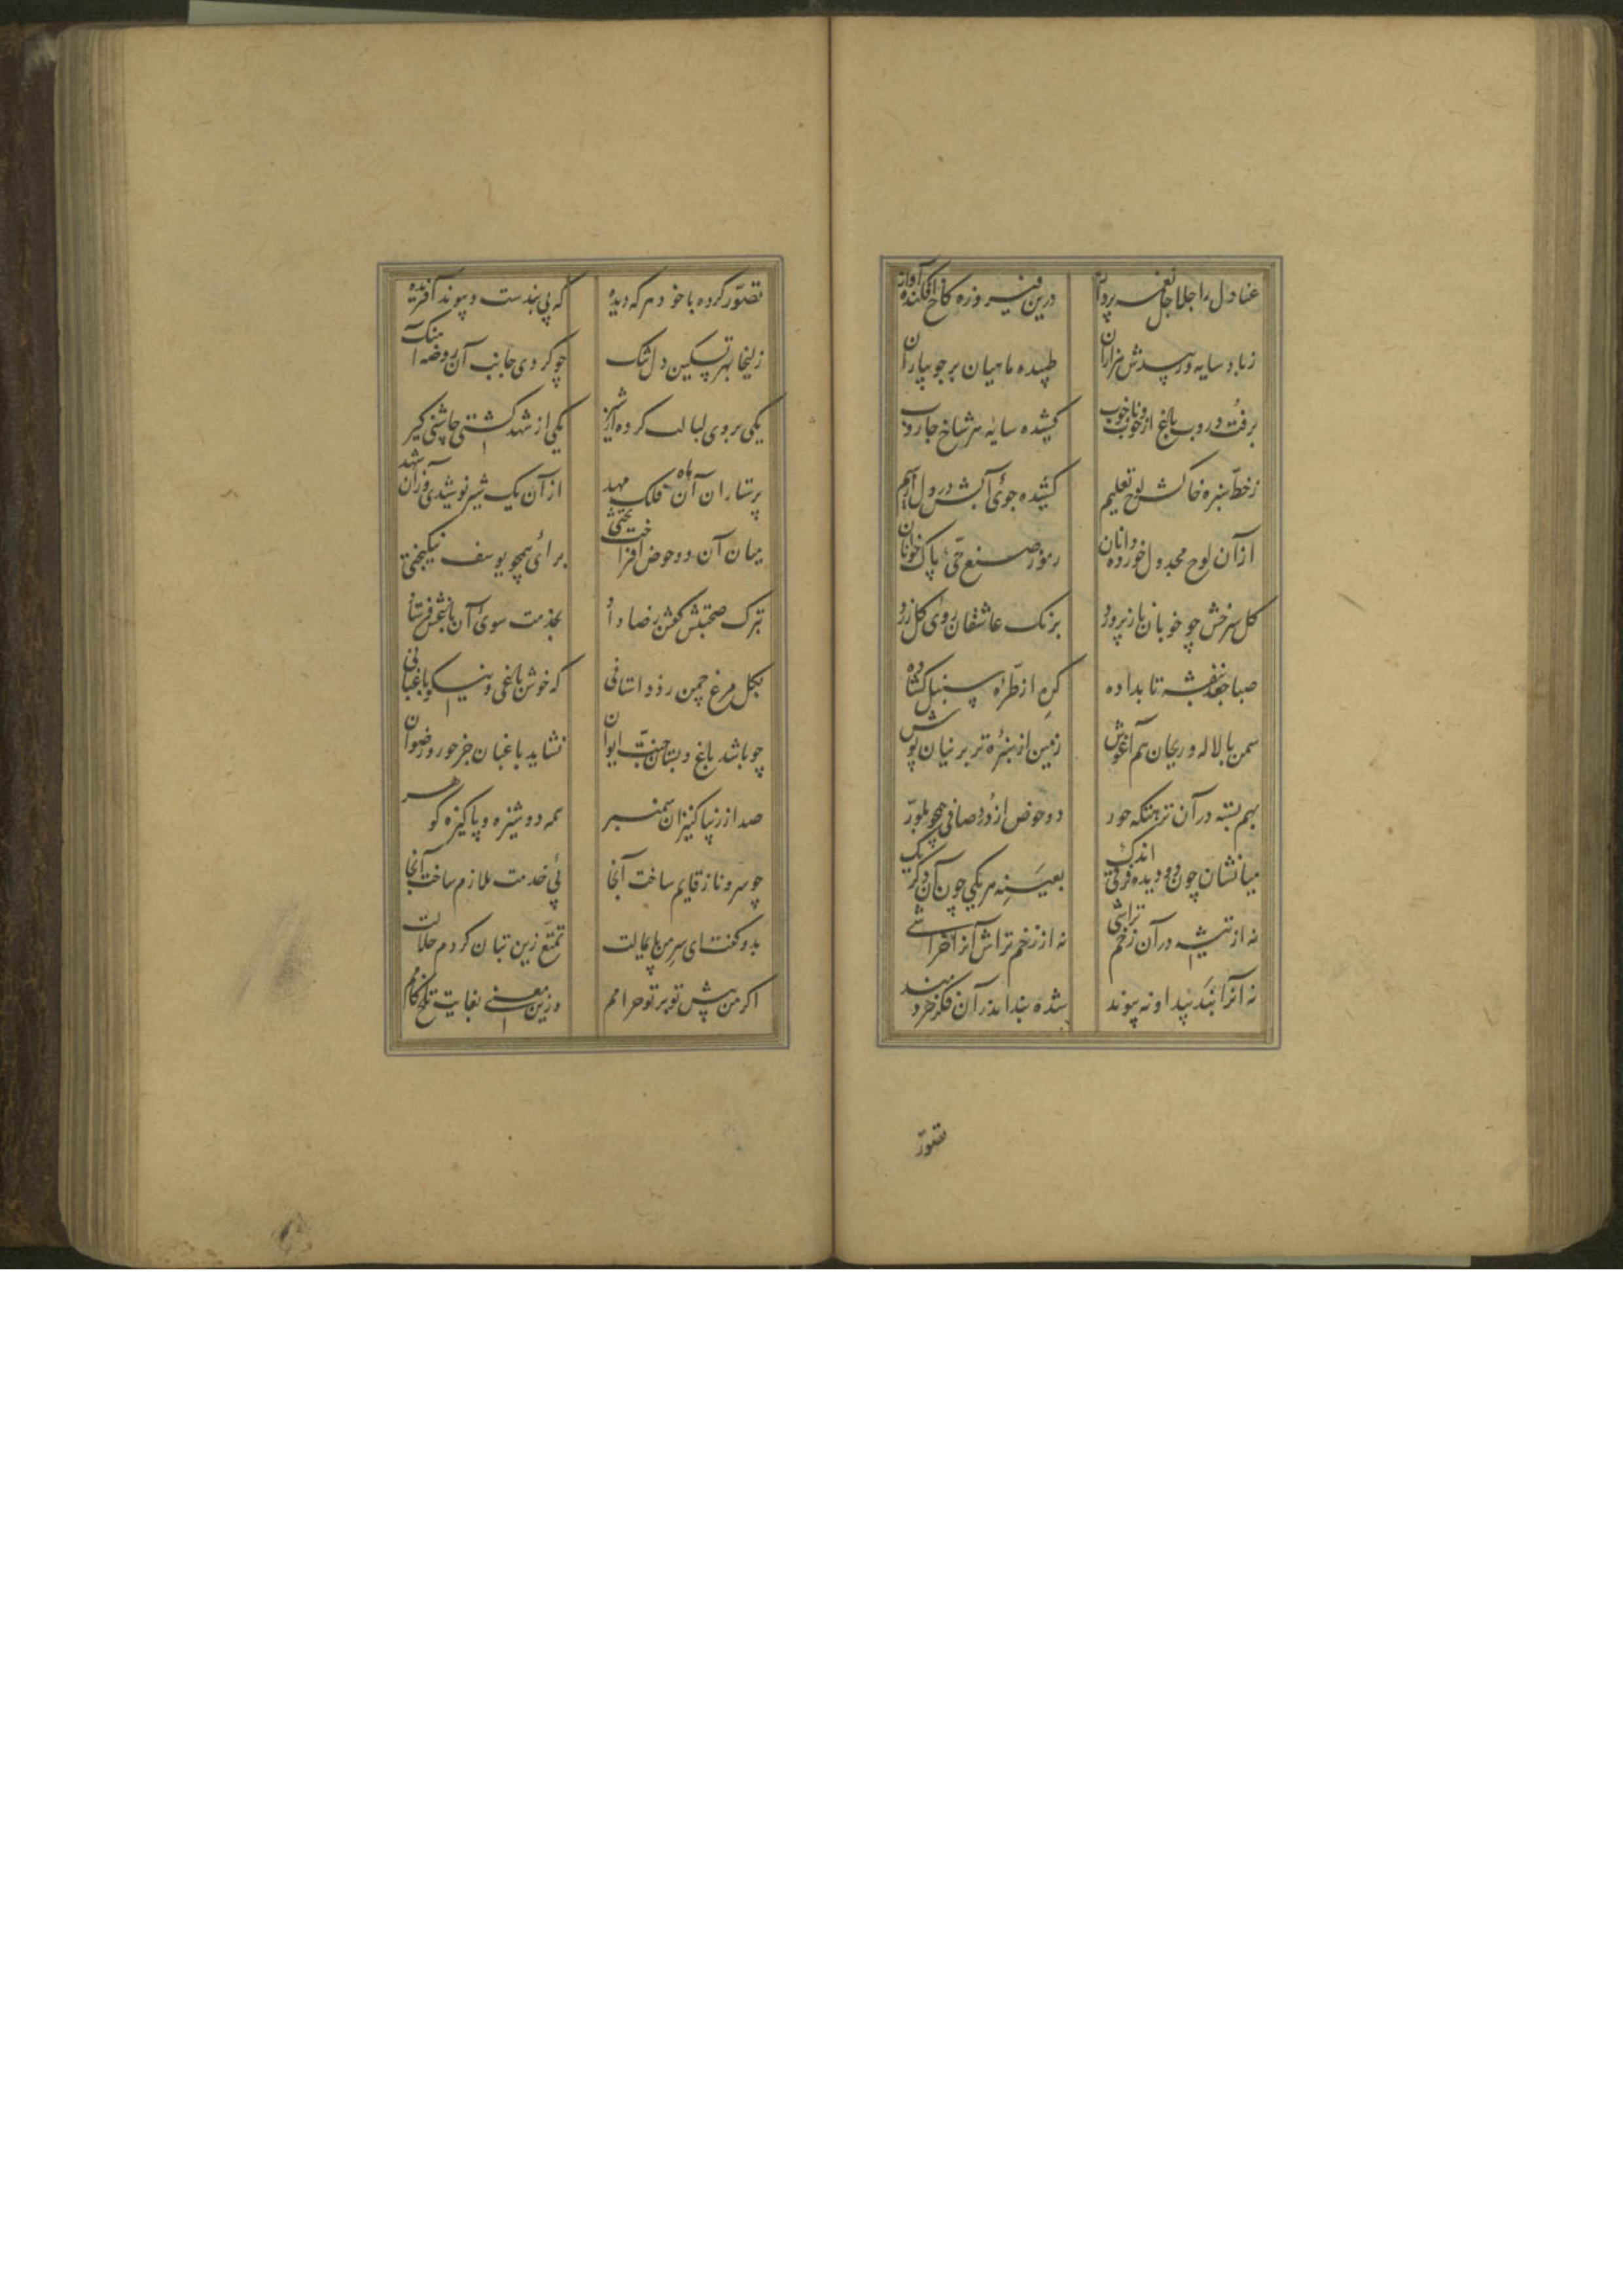 عنادل را جلاجل نغمه پرداز درین فیروزه کاخ افکنده آواز
زباد سایه ور بیدش هزاران طپیده ماهیان بر جویباران
برفت و روب باغ از خوب و ناخوب کشیده سایه هر شاخ جاروب
ز خطّ سبزه خاکش لوح تعلیم کشیده جوی آبش جدول از سیم
از آن لوح مجدول خورده دانان رموز صنع حیّ پاک خوانان
کل سرخش چو خوبان نازپرورد برنک عاشقان روی کل زرد
صبا جعد بنفشه تاب داده کره از طرّه سنبل کشاده
سمن با لاله و ریحان هم آغوش زمین از سبزهٔ تر پرنیان پوش
بهم بسته در آن نزهتکه حور دو حوض از دور صافی همچو بلور
میانشان چون دو دیده فرقی اندک بعینه هر یکی چون آن دکر یک
نه از تیشه در آن زخم تراشی نه از زخم تراش آنرا خراشی
نه آنرا بند پیدا و نه پیوند شده بند اندر آن فکر خردمند
تصوّر
تصوّر کرده با خود هر که دیده که بی بندست و پیوند آفریده
زلیخا بهر تسکین دل تنک چو کردی جانب آن روضه آهنک
یکی بر روی لبالب کرده از شیر یکی از شهد کشتی چاشنی کیر
پرستاران آن ماه فلک مهد از آن یک شیر نوشیدی وز آن شهد
میان آن دو حوض افراخت تختی برای همچو یوسف نیکبختی
بترک صحبتش کفتن رضا داد بخدمت سوی آن باغش فرستاد
بکل مرغ چمن زد داستانی که خوش باغی و نیکو باغبانی
چو باشد باغ و بستان جنّت ایوان نشاید باغبان جز حور و رضوان
صد از زیبا کنیزان سمنبر همه دوشیزه و پاکیزه کوهر
چو سرو ناز قایم ساخت آنجا پی خدمت ملازم ساخت آنجا
بدو کفت ای سر من پایمالت تمتّع زین بتان کردم حلالت
اکر من پیش تو بر تو حرامم وزین معنی بغایت تلخ کامم